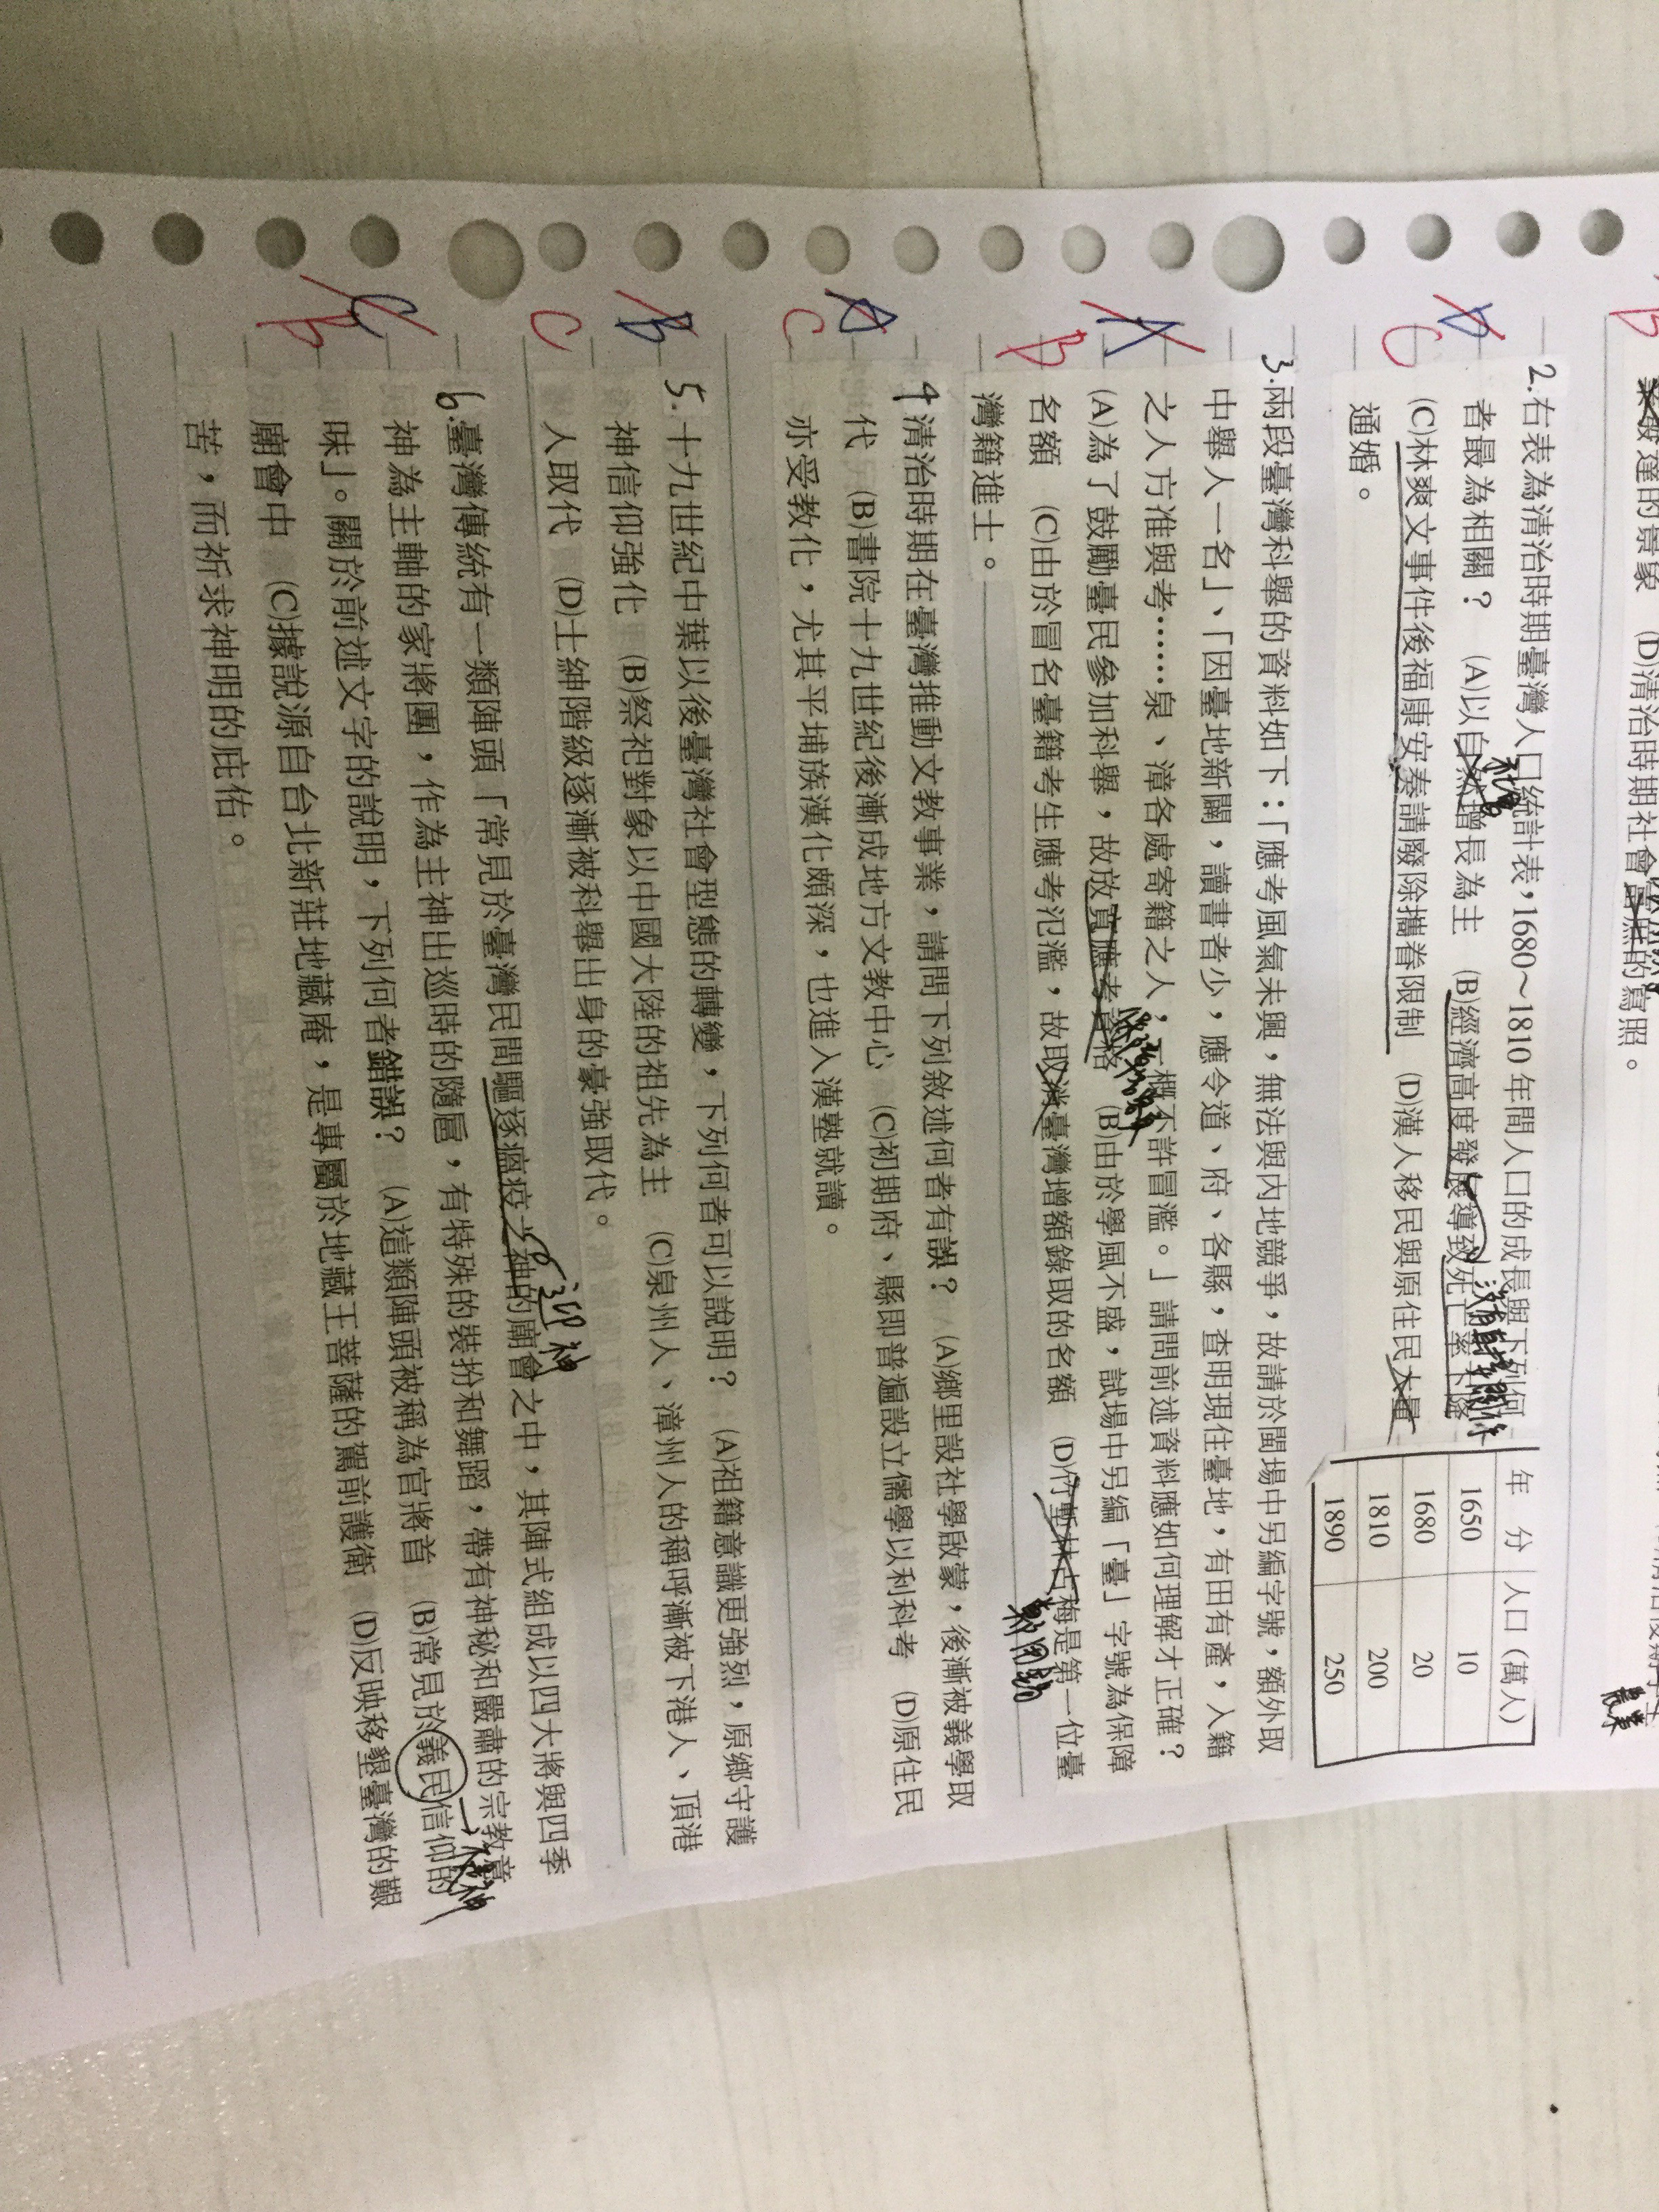 業發達的景象 (D)清治時期社會富庶的寫照。
B
2.右表為清治時期臺灣人口統計表,1680～1810 年間人口的成長與下列何
者最為相關? (A)以自然增長為主 (B)經濟高度發展導致死亡率下降
(C)林爽文事件後福康安奏請廢除攜眷限制 (D)漢人移民與原住民大量
通婚。
C
年 分 人口(萬人)
1650 10
1680 20
1810 200
1890 250
3.兩段臺灣科舉的資料如下:「應考風氣未興,無法與內地競爭,故請於閩場中另編字號,額外取
中舉人一名」、「因臺地新闢,讀書者少,應令道、府、各縣,查明現住臺地,有田有產,入籍
之人方准與考……泉、漳各處寄籍之人,一概不許冒濫。」請問前述資料應如何理解才正確?
(A)為了鼓勵臺民參加科舉,故放寬應考資格 (B)由於學風不盛,試場中另編「臺」字號為保障
名額 (C)由於冒名臺籍考生應考氾濫,故取消臺灣增額錄取的名額 (D)竹塹林占梅是第一位臺
灣籍進士。
A
B
4清治時期在臺灣推動文教事業,請問下列敘述何者有誤? (A)鄉里設社學啟蒙,後漸被義學取
代 (B)書院十九世紀後漸成地方文教中心 (C)初期府、縣即普遍設立儒學以利科考 (D)原住民
亦受教化,尤其平埔族漢化頗深,也進入漢塾就讀。
A
C
5.十九世紀中葉以後臺灣社會型態的轉變,下列何者可以說明? (A)祖籍意識更強烈,原鄉守護
神信仰強化 (B)祭祀對象以中國大陸的祖先為主 (C)泉州人、漳州人的稱呼漸被下港人、頂港
人取代 (D)士紳階級逐漸被科舉出身的豪強取代。
B
C
迎神
6.臺灣傳統有一類陣頭「常見於臺灣民間驅逐瘟疫之神的廟會之中,其陣式組成以四大將與四季
神為主軸的家將團,作為主神出巡時的隨扈,有特殊的裝扮和舞蹈,帶有神秘和嚴肅的宗教意
味」。關於前述文字的說明,下列何者錯誤? (A)這類陣頭被稱為官將首 (B)常見於義民信仰的
廟會中 (C)據說源自台北新莊地藏庵,是專屬於地藏王菩薩的駕前護衛 (D)反映移墾臺灣的艱
苦,而祈求神明的庇佑。
C
B